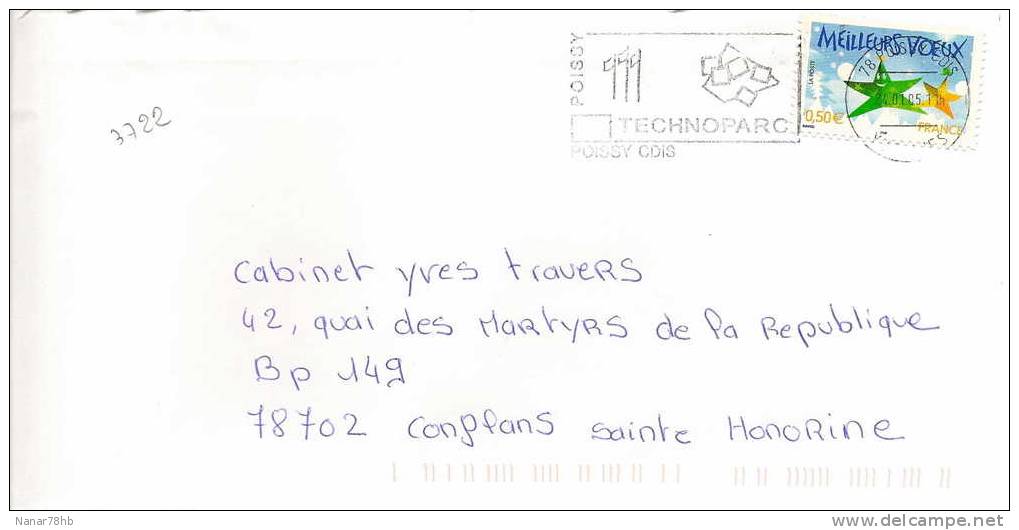 POISSY
TECHNOPARC
POISSY CDIS
MEILLEURS VOEUX
LA POSTE
0,50€
FRANCE
78 POISSY CDIS
24.01.05.11h
3722
Cabinet yves travers
42, quai des Martyrs de la Republique
Bp 149
78702 Conflans Sainte Honorine
Nanar78hb
delcampe.net